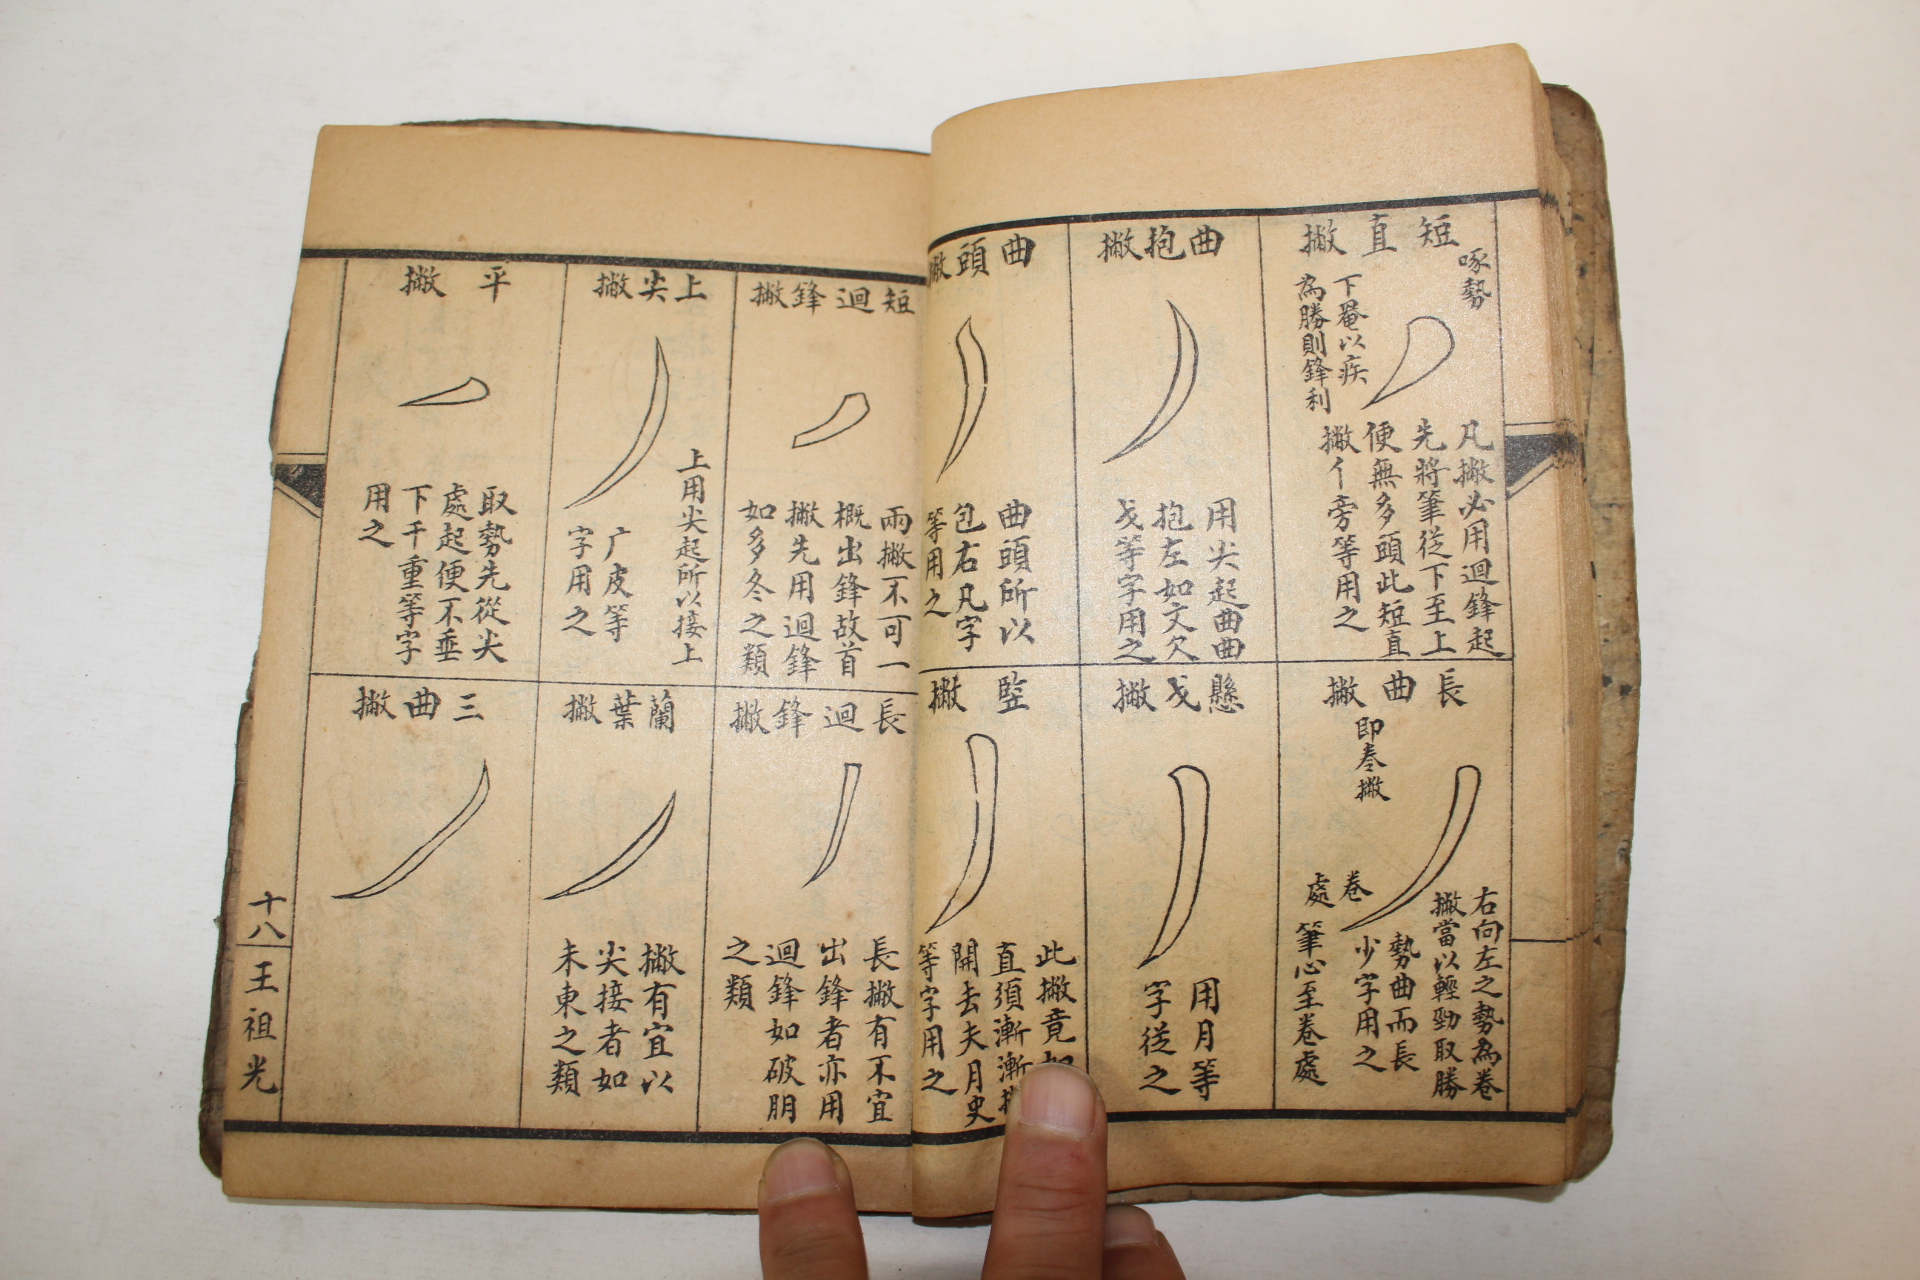 短直撇
啄勢
下菴以疾
為勝則鋒利
凡撇必用迴鋒起
先將筆從下至上
便無多頭此短直
撇亻旁等用之
曲抱撇
用尖起曲曲
抱左如文欠
戈等字用之
曲頭撇
曲頭所以
包右凡字
等用之
長曲撇
即卷撇
右向左之勢為卷
撇當以輕勁取勝
勢曲而長
少字用之
卷
處
筆心至卷處
懸戈撇
用月等
字從之
竪撇
此撇竟
直須漸漸
開去夫月史
等字用之
短迴鋒撇
兩撇不可一
概出鋒故首
撇先用迴鋒
如多冬之類
上尖撇
上用尖起所以接上
广皮等
字用之
平撇
取勢先從尖
處起便不垂
下千重等字
用之
長迴鋒撇
長撇有不宜
出鋒者亦用
迴鋒如破朋
之類
蘭葉撇
撇有宜以
尖接者如
未東之類
三曲撇
十八
王祖光